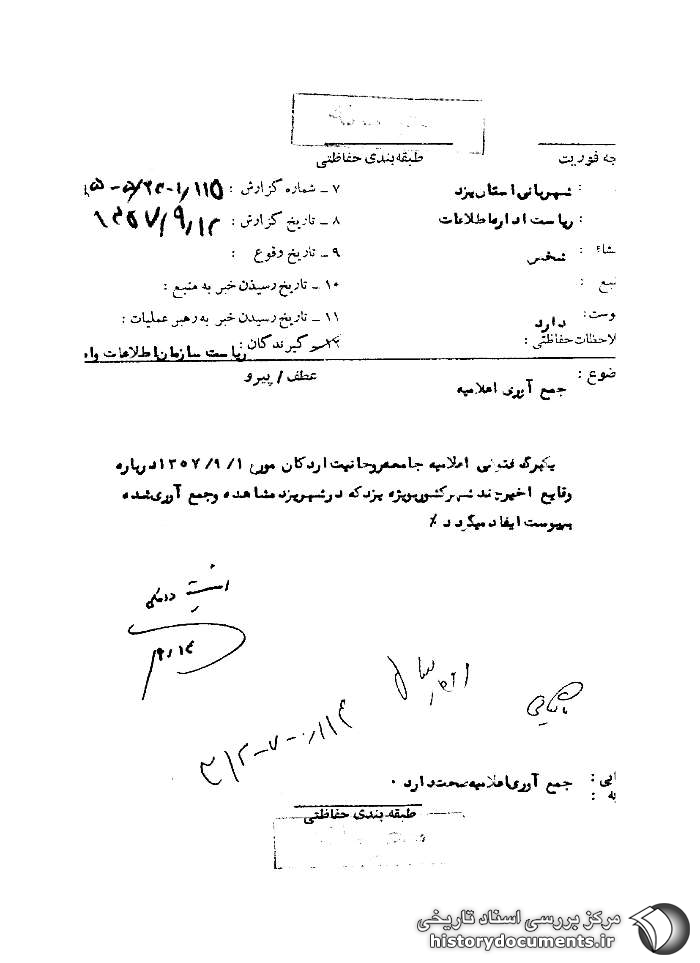 طبقه‌بندی حفاظتی
جه فوریت
: شهربانی استان یزد
: ریاست اداره اطلاعات
شاء : شخص
نبع :
وست : دارد
لاحظات حفاظتی :
۷ ـ شماره گزارش :
۸ ـ تاریخ گزارش : ۱۳۵۷/۹/۱۲
۹ ـ تاریخ وقوع :
۱۰ ـ تاریخ رسیدن خبر به منبع :
۱۱ ـ تاریخ رسیدن خبر به رهبر عملیات :
گیرندگان : ریاست سازمان اطلاعات وا
ضوع : جمع آوری اعلامیه
عطف / پیرو
یکبرگ فتوکپی اعلامیه جامعه روحانیت اردکان مورخ ۱۳۵۷/۹/۱ درباره
وقایع اخیر چند شهر کشور بویژه یزد که در شهر یزد مشاهده و جمع آوری شده
بپیوست ایفاد میگردد ٪
۳۱۲
ابی : جمع آوری اعلامیه صحت دارد .
یه :
طبقه بندی حفاظتی
مرکز بررسی اسناد تاریخی
historydocuments.ir